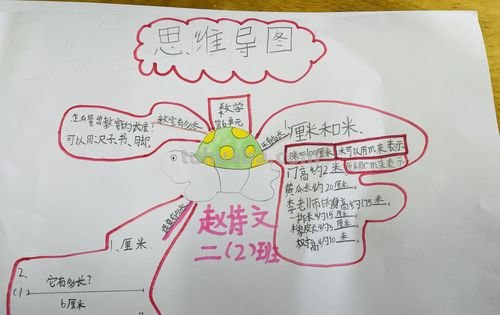 思维导图
数学
第6单元
怎么量出教室的长度?
可以用:尺子、书、脚。
教室有多长
厘米和米.
1米=100厘米
米可以用m来表示
厘米用cm来表示
门高约2米
黄瓜长约20厘米。
李老师的身高约175厘米。
一拃长约15厘米
橡皮长约3厘米。
约10米。
赵诗文
二(2)班
1、厘米
2.
(1)
它有多长?
6厘米